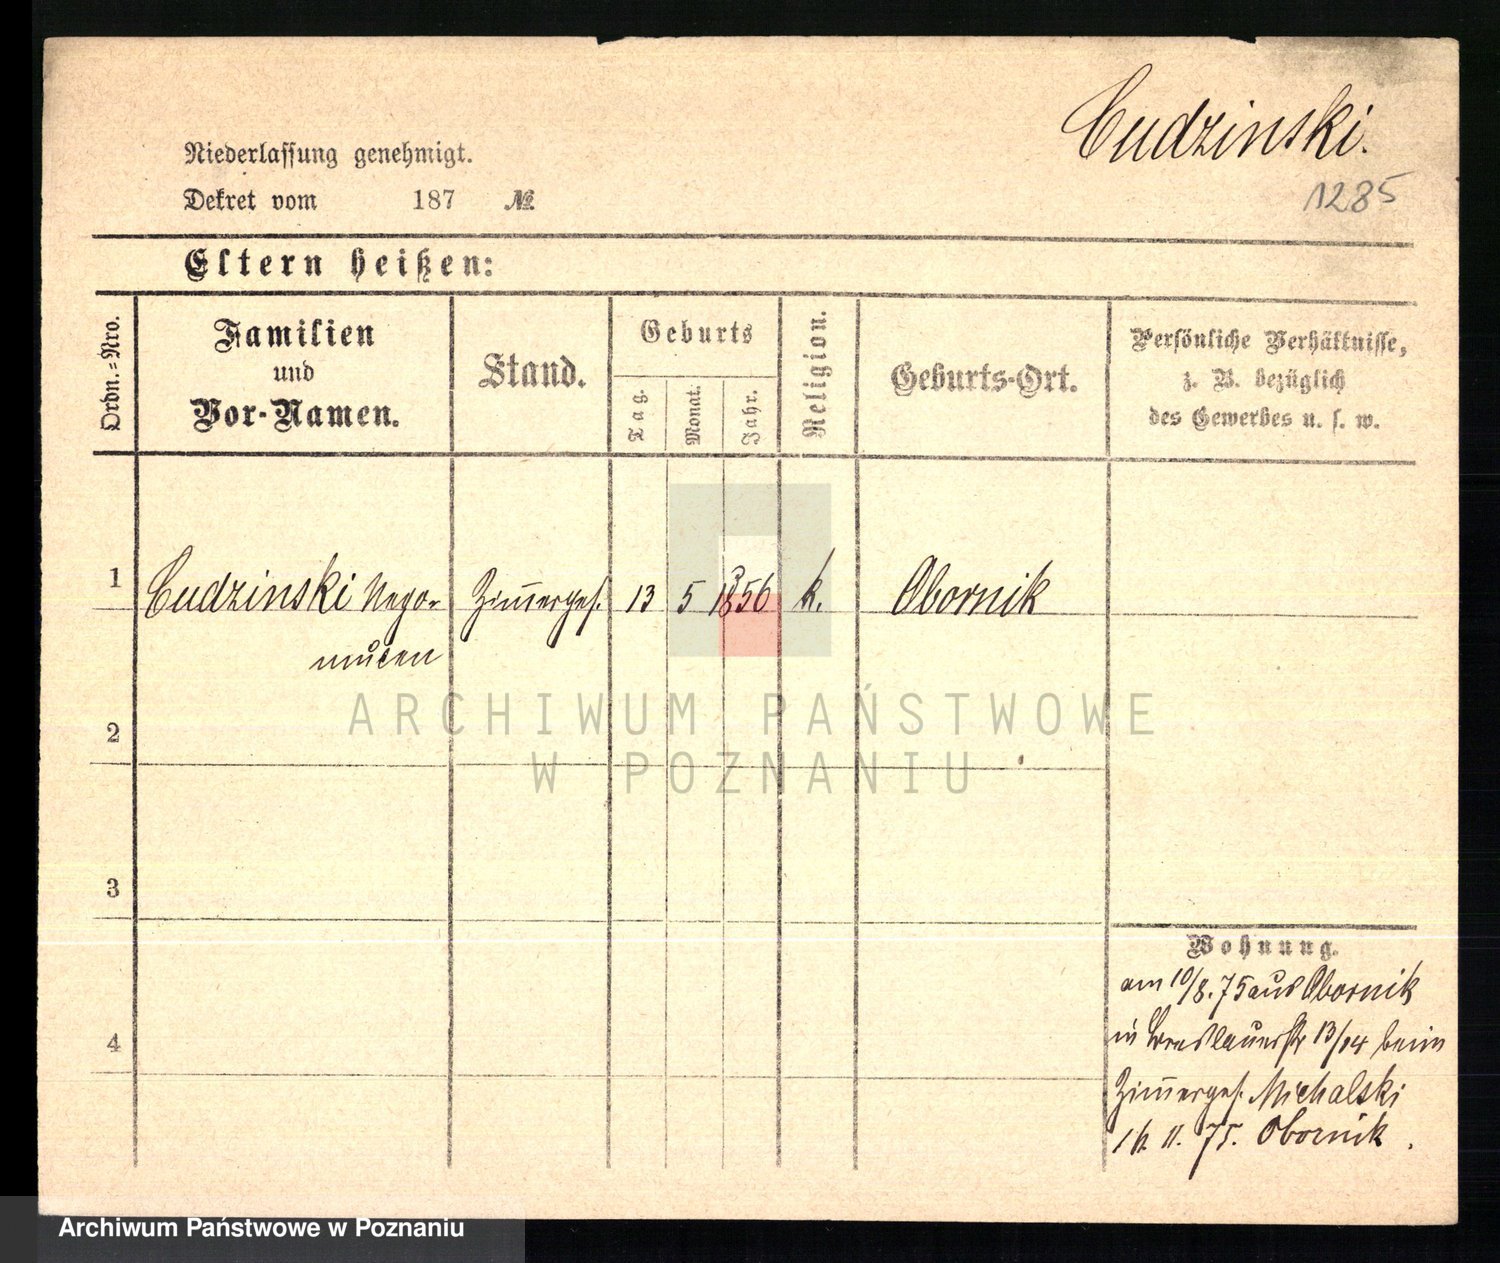 Cudzinski.
1285
Niederlassung genehmigt.
Dekret vom 187 №
Eltern heißen:
Ordn.=Nro.
Familien
und
Vor-Namen.
Stand.
Geburts
Tag.
Monat.
Jahr.
Religion.
Geburts-Ort.
Persönliche Verhältnisse,
z. B. bezüglich
des Gewerbes u. s. w.
1 Cudzinski Nepo- Zimmerges. 13 5 1856 k. Obornik
mucen
2
3
4
Wohnung.
am 10/8. 75 aus Obornik
in Breslauerstr 13/14 beim
Zimmerges. Michalski
11. 75. Obornik.
ARCHIWUM PAŃSTWOWE
W POZNANIU
Archiwum Państwowe w Poznaniu